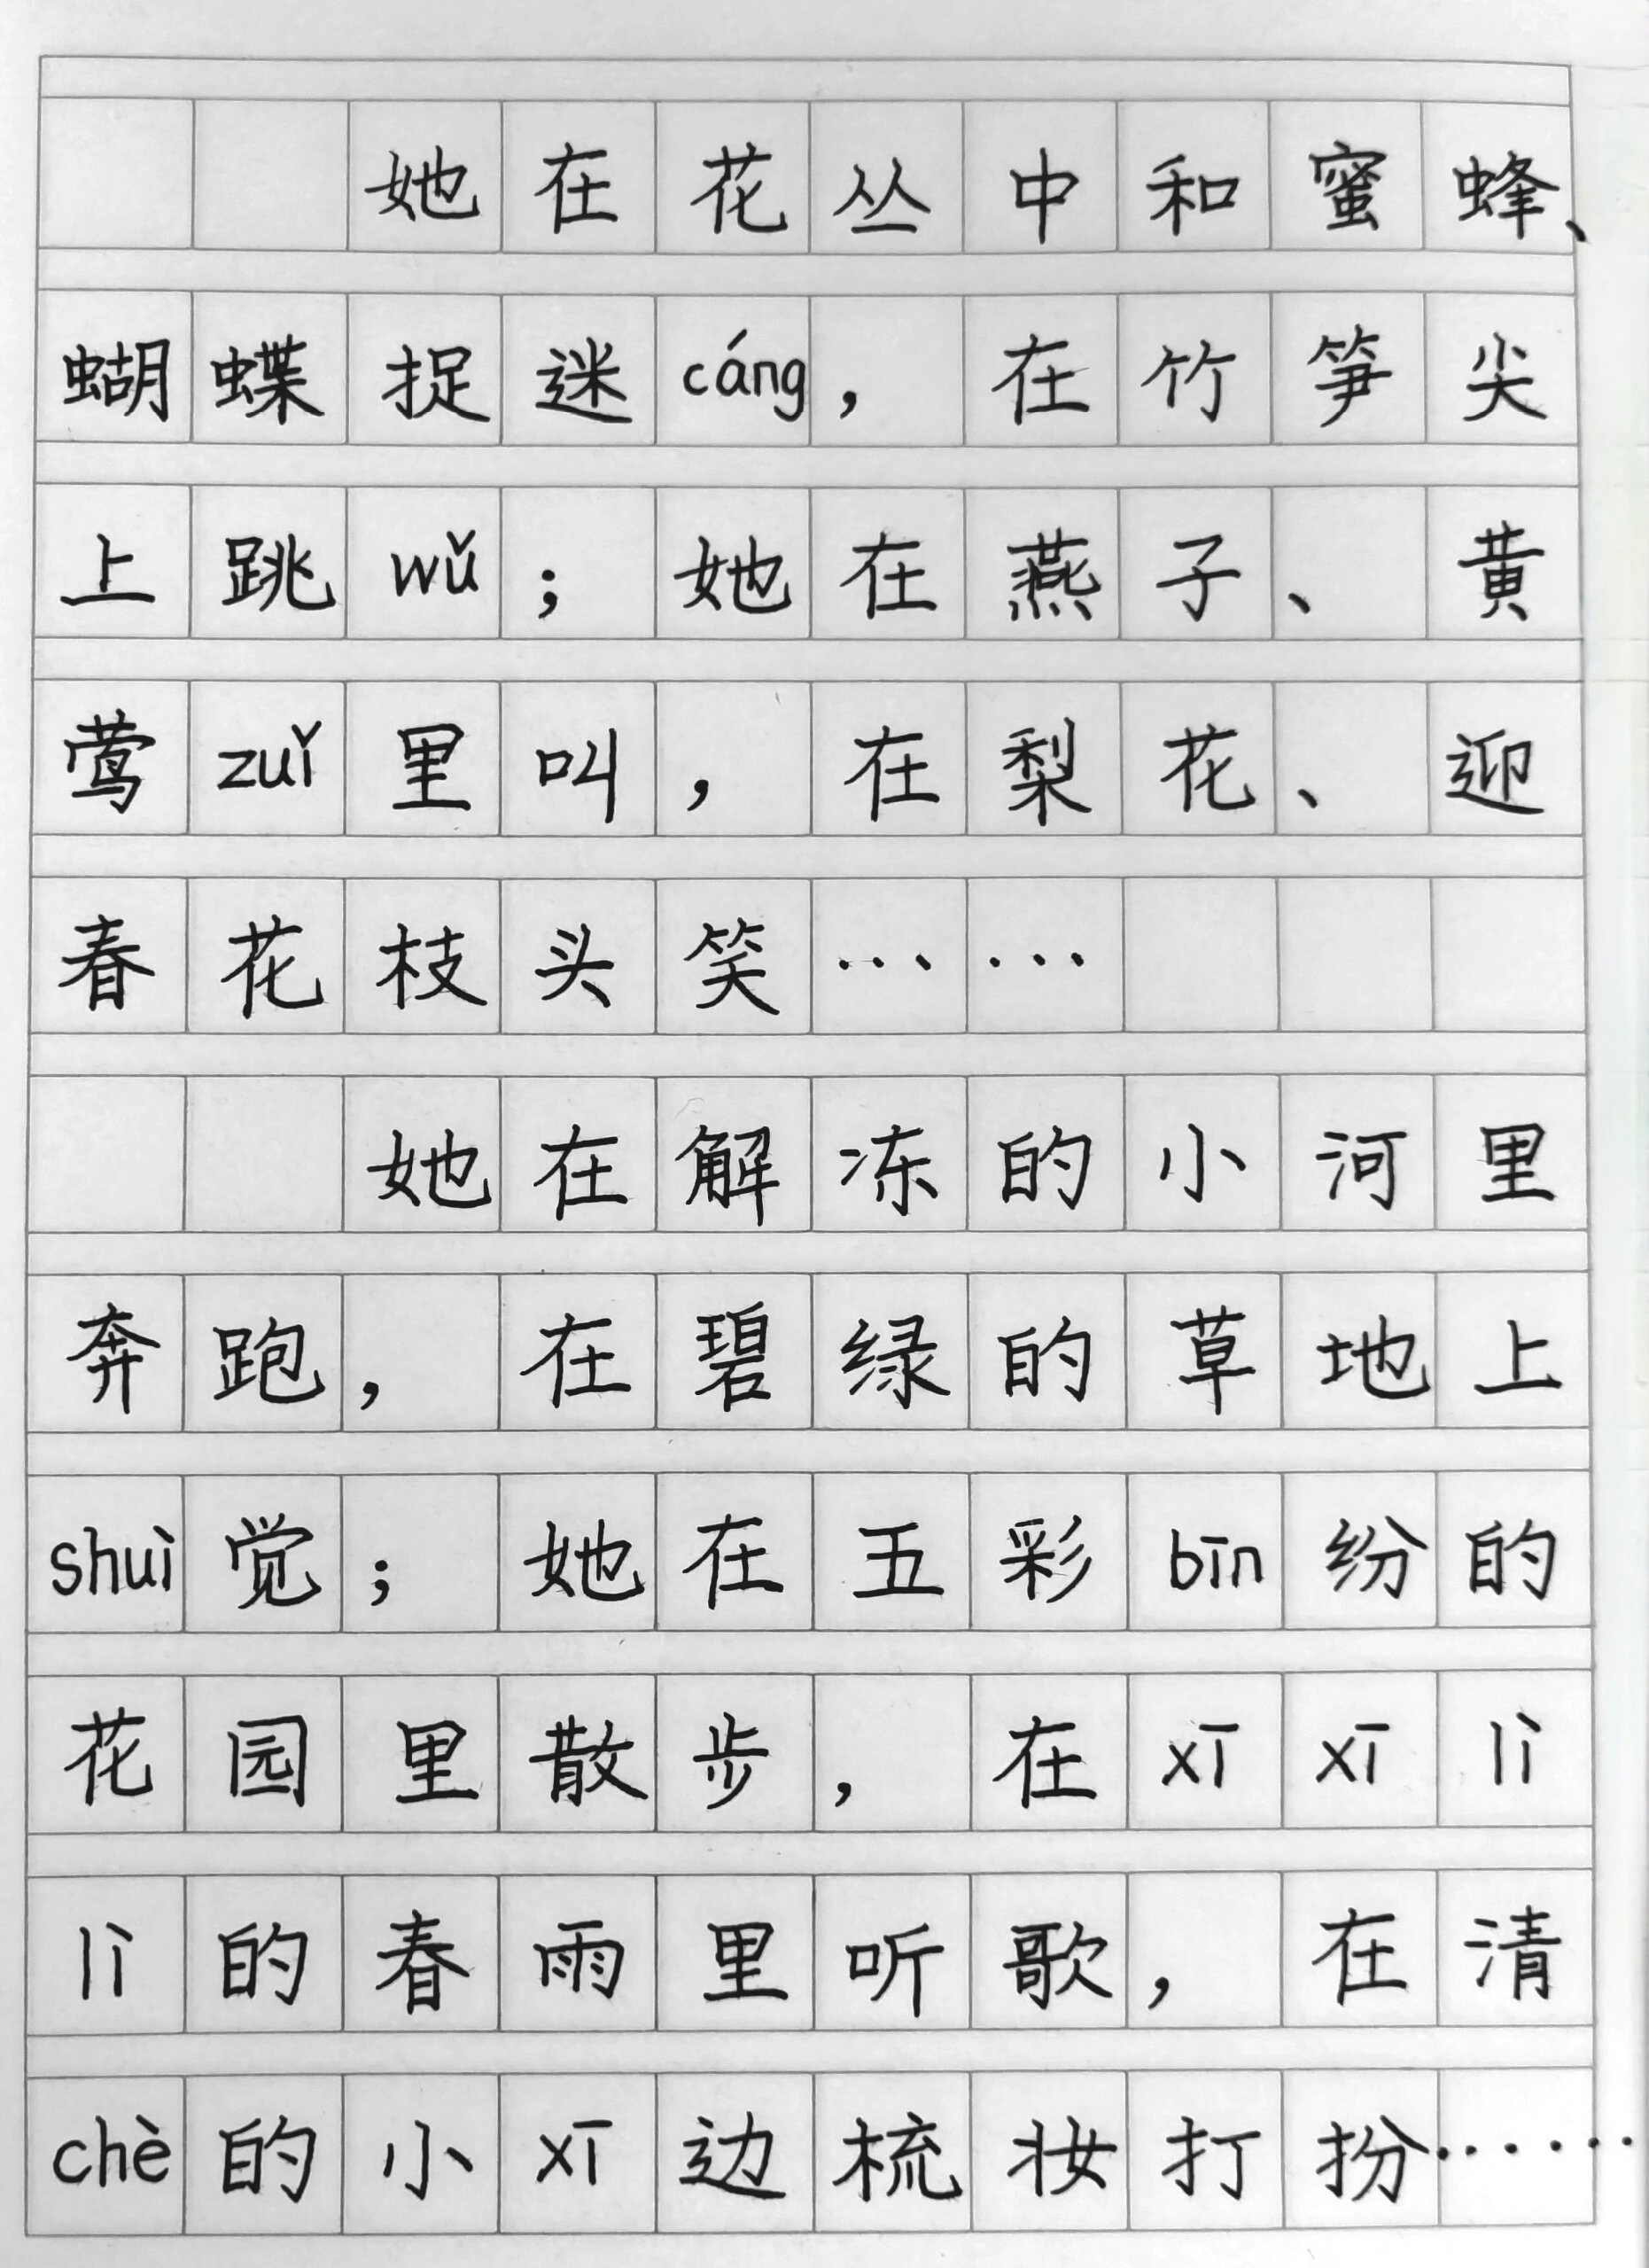 她在花丛中和蜜蜂、
蝴蝶捉迷cáng，在竹笋尖
上跳wǔ；她在燕子、黄
莺zuǐ里叫，在梨花、迎
春花枝头笑……
她在解冻的小河里
奔跑，在碧绿的草地上
shuì觉；她在五彩bīn纷的
花园里散步，在xī xī lì
lì的春雨里听歌，在清
chè的小xī边梳妆打扮……